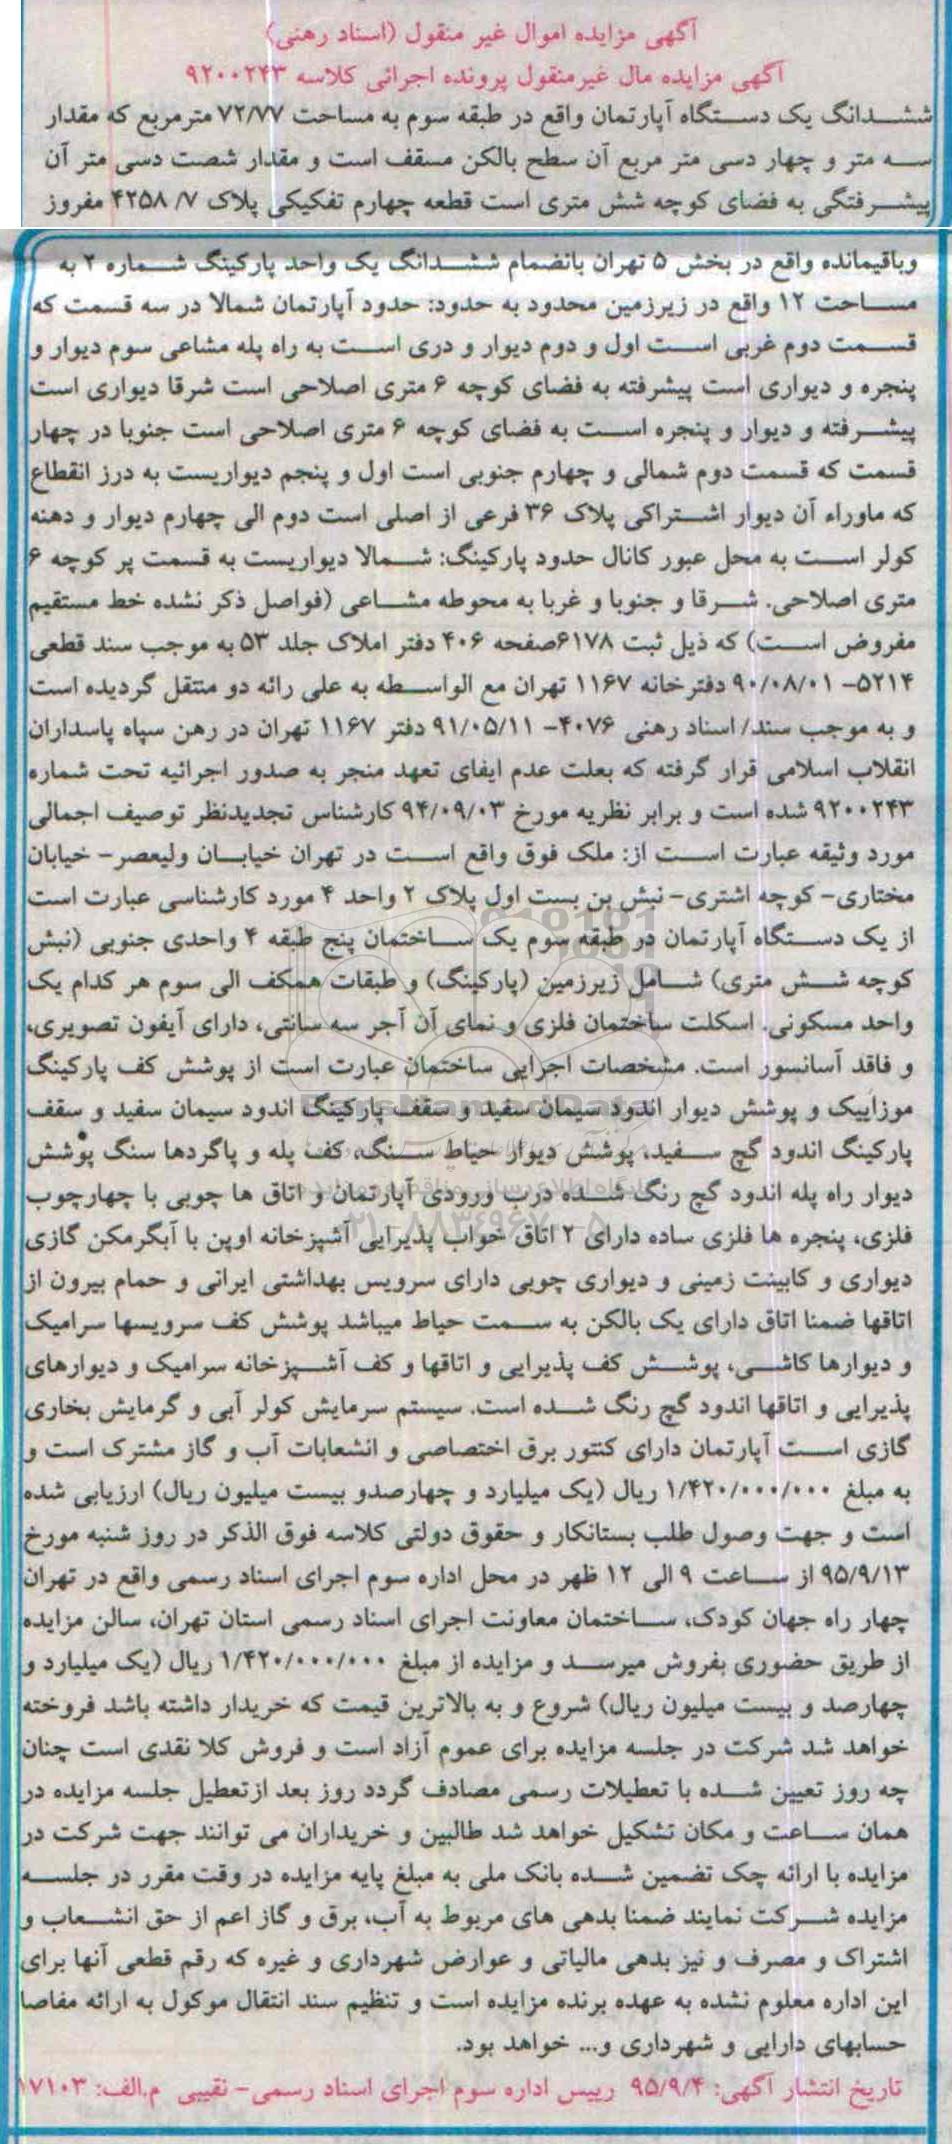 آگهی مزایده اموال غیر منقول (اسناد رهنی)
آگهی مزایده مال غیرمنقول پرونده اجرائی کلاسه ۹۲۰۰۲۴۳
ششدانگ یک دستگاه آپارتمان واقع در طبقه سوم به مساحت ۷۲/۷۷ مترمربع که مقدار
سه متر و چهار دسی متر مربع آن سطح بالکن مسقف است و مقدار شصت دسی متر آن
پیشرفتگی به فضای کوچه شش متری است قطعه چهارم تفکیکی پلاک ۷/ ۴۲۵۸ مفروز
وباقیمانده واقع در بخش ۵ تهران بانضمام ششدانگ یک واحد پارکینگ شماره ۲ به
مساحت ۱۲ واقع در زیرزمین محدود به حدود: حدود آپارتمان شمالا در سه قسمت که
قسمت دوم غربی است اول و دوم دیوار و دری است به راه پله مشاعی سوم دیوار و
پنجره و دیواری است پیشرفته به فضای کوچه ۶ متری اصلاحی است شرقا دیواری است
پیشرفته و دیوار و پنجره است به فضای کوچه ۶ متری اصلاحی است جنوبا در چهار
قسمت که قسمت دوم شمالی و چهارم جنوبی است اول و پنجم دیواریست به درز انقطاع
که ماوراء آن دیوار اشتراکی پلاک ۳۶ فرعی از اصلی است دوم الی چهارم دیوار و دهنه
کولر است به محل عبور کانال حدود پارکینگ: شمالا دیواریست به قسمت پر کوچه ۶
متری اصلاحی. شرقا و جنوبا و غربا به محوطه مشاعی (فواصل ذکر نشده خط مستقیم
مفروض است) که ذیل ثبت ۶۱۷۸صفحه ۴۰۶ دفتر املاک جلد ۵۳ به موجب سند قطعی
۵۲۱۴- ۹۰/۰۸/۰۱ دفترخانه ۱۱۶۷ تهران مع الواسطه به علی رائه دو منتقل گردیده است
و به موجب سند/ اسناد رهنی ۴۰۷۶- ۹۱/۰۵/۱۱ دفتر ۱۱۶۷ تهران در رهن سپاه پاسداران
انقلاب اسلامی قرار گرفته که بعلت عدم ایفای تعهد منجر به صدور اجرائیه تحت شماره
۹۲۰۰۲۴۳ شده است و برابر نظریه مورخ ۹۴/۰۹/۰۳ کارشناس تجدیدنظر توصیف اجمالی
مورد وثیقه عبارت است از: ملک فوق واقع است در تهران خیابان ولیعصر- خیابان
مختاری- کوچه اشتری- نبش بن بست اول پلاک ۲ واحد ۴ مورد کارشناسی عبارت است
از یک دستگاه آپارتمان در طبقه سوم یک ساختمان پنج طبقه ۴ واحدی جنوبی (نبش
کوچه شش متری) شامل زیرزمین (پارکینگ) و طبقات همکف الی سوم هر کدام یک
واحد مسکونی. اسکلت ساختمان فلزی و نمای آن آجر سه سانتی، دارای آیفون تصویری،
و فاقد آسانسور است. مشخصات اجرایی ساختمان عبارت است از پوشش کف پارکینگ
موزاییک و پوشش دیوار اندود سیمان سفید و سقف پارکینگ اندود سیمان سفید و سقف
پارکینگ اندود گچ سفید، پوشش دیوار حیاط سنگ، کف پله و پاگردها سنگ پوشش
دیوار راه پله اندود گچ رنگ شده درب ورودی آپارتمان و اتاق ها چوبی با چهارچوب
فلزی، پنجره ها فلزی ساده دارای ۲ اتاق خواب پذیرایی آشپزخانه اوپن با آبگرمکن گازی
دیواری و کابینت زمینی و دیواری چوبی دارای سرویس بهداشتی ایرانی و حمام بیرون از
اتاقها ضمنا اتاق دارای یک بالکن به سمت حیاط میباشد پوشش کف سرویسها سرامیک
و دیوارها کاشی، پوشش کف پذیرایی و اتاقها و کف آشپزخانه سرامیک و دیوارهای
پذیرایی و اتاقها اندود گچ رنگ شده است. سیستم سرمایش کولر آبی و گرمایش بخاری
گازی است آپارتمان دارای کنتور برق اختصاصی و انشعابات آب و گاز مشترک است و
به مبلغ ۱/۴۲۰/۰۰۰/۰۰۰ ریال (یک میلیارد و چهارصدو بیست میلیون ریال) ارزیابی شده
است و جهت وصول طلب بستانکار و حقوق دولتی کلاسه فوق الذکر در روز شنبه مورخ
۹۵/۹/۱۳ از ساعت ۹ الی ۱۲ ظهر در محل اداره سوم اجرای اسناد رسمی واقع در تهران
چهار راه جهان کودک، ساختمان معاونت اجرای اسناد رسمی استان تهران، سالن مزایده
از طریق حضوری بفروش میرسد و مزایده از مبلغ ۱/۴۲۰/۰۰۰/۰۰۰ ریال (یک میلیارد و
چهارصد و بیست میلیون ریال) شروع و به بالاترین قیمت که خریدار داشته باشد فروخته
خواهد شد شرکت در جلسه مزایده برای عموم آزاد است و فروش کلا نقدی است چنان
چه روز تعیین شده با تعطیلات رسمی مصادف گردد روز بعد ازتعطیل جلسه مزایده در
همان ساعت و مکان تشکیل خواهد شد طالبین و خریداران می توانند جهت شرکت در
مزایده با ارائه چک تضمین شده بانک ملی به مبلغ پایه مزایده در وقت مقرر در جلسه
مزایده شرکت نمایند ضمنا بدهی های مربوط به آب، برق و گاز اعم از حق انشعاب و
اشتراک و مصرف و نیز بدهی مالیاتی و عوارض شهرداری و غیره که رقم قطعی آنها برای
این اداره معلوم نشده به عهده برنده مزایده است و تنظیم سند انتقال موکول به ارائه مفاصا
حسابهای دارایی و شهرداری و... خواهد بود.
تاریخ انتشار آگهی: ۹۵/۹/۴ رییس اداره سوم اجرای اسناد رسمی- نقیبی م.الف: ۱۷۱۰۳